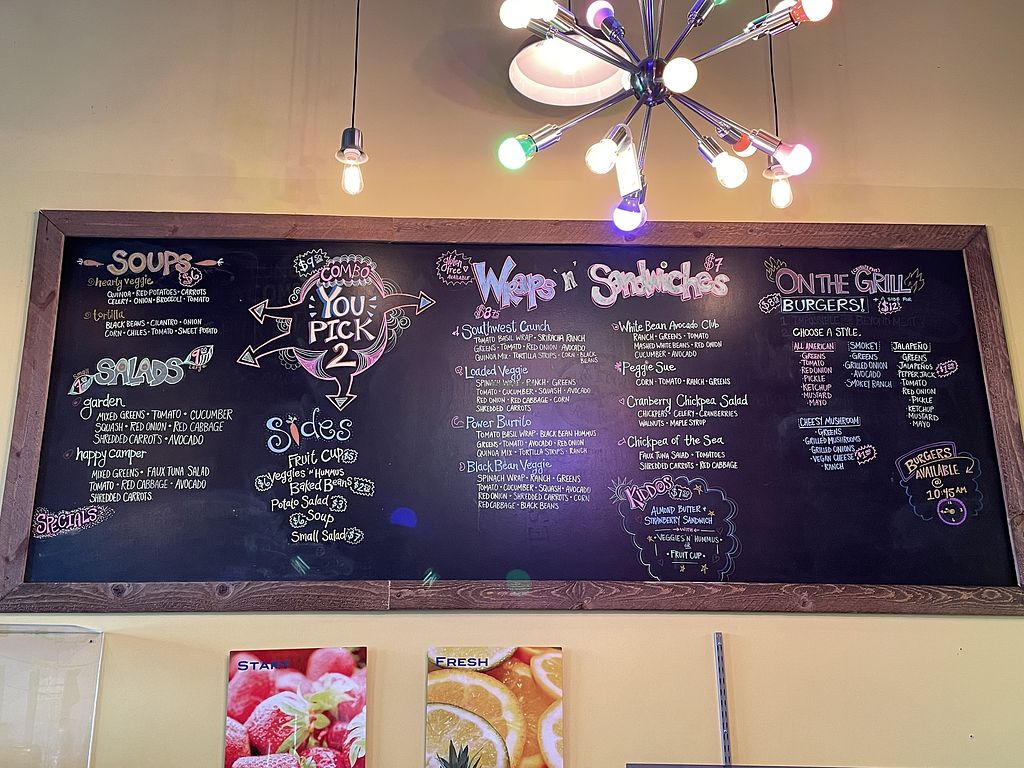 SOUPS
$6
hearty veggie
QUINOA • RED POTATOES • CARROTS
CELERY • ONION • BROCCOLI • TOMATO
tortilla
BLACK BEANS • CILANTRO • ONION
CORN • CHILES • TOMATO • SWEET POTATO
SALADS
garden
MIXED GREENS • TOMATO • CUCUMBER
SQUASH • RED ONION • RED CABBAGE
SHREDDED CARROTS • AVOCADO
happy camper
MIXED GREENS • FAUX TUNA SALAD
TOMATO • RED CABBAGE • AVOCADO
SHREDDED CARROTS
SPECIALS
COMBO
YOU
PICK
2
Sides
FRUIT CUP
VEGGIES 'N' HUMMUS
BAKED BEANS
POTATO SALAD $3
$6 SOUP
SMALL SALAD $7
gluten
free
AVAILABLE
Wraps 'n' Sandwiches
$7
Southwest Crunch
TOMATO BASIL WRAP • SRIRACHA RANCH
GREENS • TOMATO • RED ONION • AVOCADO
QUINOA MIX • TORTILLA STRIPS • CORN • BLACK
BEANS
Loaded Veggie
SPINACH WRAP • RANCH • GREENS
TOMATO • CUCUMBER • SQUASH • AVOCADO
RED ONION • RED CABBAGE • CORN
SHREDDED CARROTS
Power Burrito
TOMATO BASIL WRAP • BLACK BEAN HUMMUS
GREENS • TOMATO • AVOCADO • RED ONION
QUINOA MIX • TORTILLA STRIPS • RANCH
Black Bean Veggie
SPINACH WRAP • RANCH • GREENS
TOMATO • CUCUMBER • SQUASH • AVOCADO
RED ONION • SHREDDED CARROTS • CORN
RED CABBAGE • BLACK BEANS
White Bean Avocado Club
RANCH • GREENS • TOMATO
MASHED WHITE BEANS • RED ONION
CUCUMBER • AVOCADO
Peggie Sue
CORN • TOMATO • RANCH • GREENS
Cranberry Chickpea Salad
CHICKPEAS • CELERY • CRANBERRIES
WALNUTS • MAPLE SYRUP
Chickpea of the Sea
FAUX TUNA SALAD • TOMATOES
SHREDDED CARROTS • RED CABBAGE
KIDDOS
ALMOND BUTTER &
STRAWBERRY SANDWICH
WITH
VEGGIES 'N' HUMMUS
FRUIT CUP
ON THE GRILL
BURGERS!
+ A SIDE FOR
$12
CHOOSE A STYLE.
ALL AMERICAN
GREENS
TOMATO
RED ONION
PICKLE
KETCHUP
MUSTARD
MAYO
SMOKEY
GREENS
GRILLED ONION
AVOCADO
SMOKEY RANCH
JALAPEÑO
GREENS
JALAPEÑOS
PEPPER JACK
TOMATO
RED ONION
PICKLE
KETCHUP
MUSTARD
MAYO
CHEESY MUSHROOM
GREENS
GRILLED MUSHROOMS
GRILLED ONIONS
VEGAN CHEESE
RANCH
BURGERS
AVAILABLE
@
10:45 AM
START
FRESH